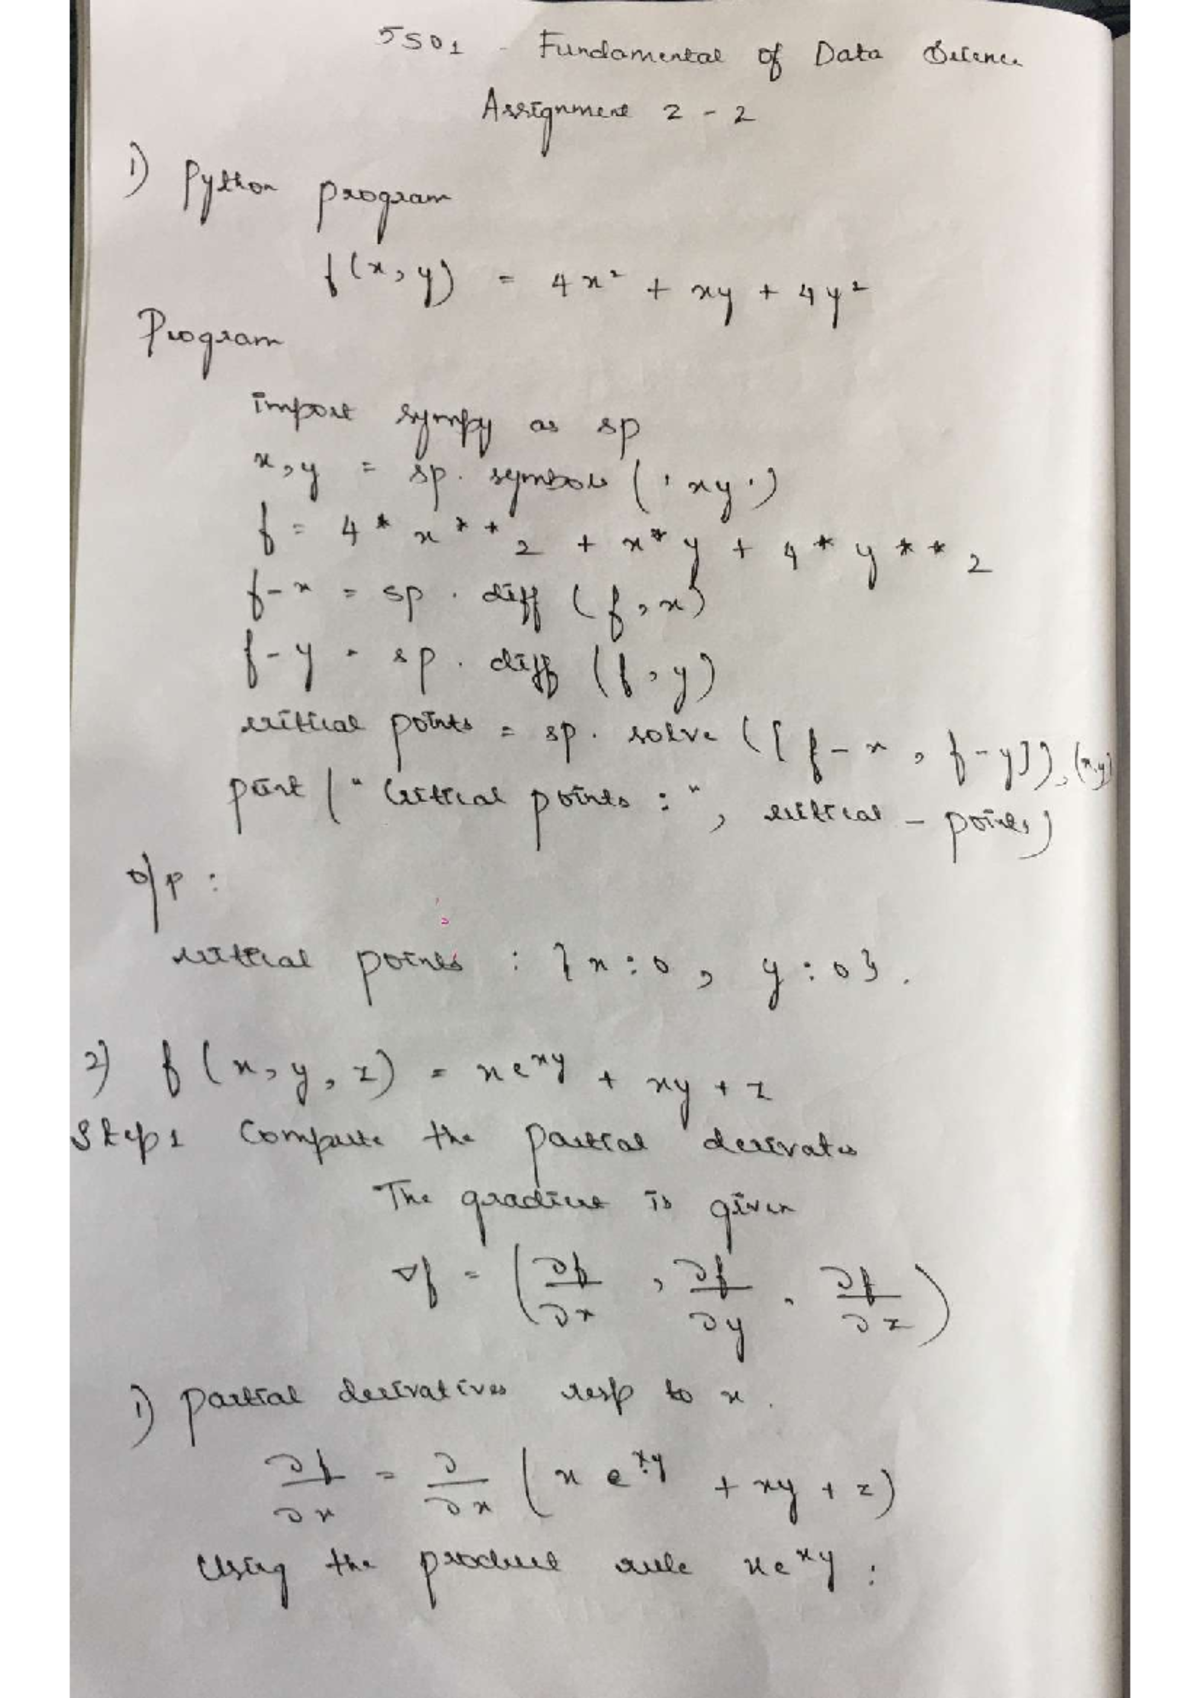 5S01 - Fundamental of Data Science
Assignment 2 - 2
1) Python program
f(x, y) = 4x² + xy + 4y²
Program
import sympy as sp
x, y = sp. symbols ('xy')
f = 4 * x * * 2 + x * y + 4 * y * * 2
f - x = sp . diff (f, x)
f - y = sp . diff (f, y)
critical points = sp. solve ([f - x, f - y]), (x,y)
print (" Critical points : ", critical - points)
o/p :
critical points : {x : 0, y : 0}.
2) f (x, y, z) = xe^xy + xy + z
Step 1 Compute the partial derivates
The gradient is given
∇f = (∂f/∂x, ∂f/∂y, ∂f/∂z)
1) partial derivatives resp to x.
∂f/∂x = ∂/∂x (x e^xy + xy + z)
Using the product rule xe^xy :